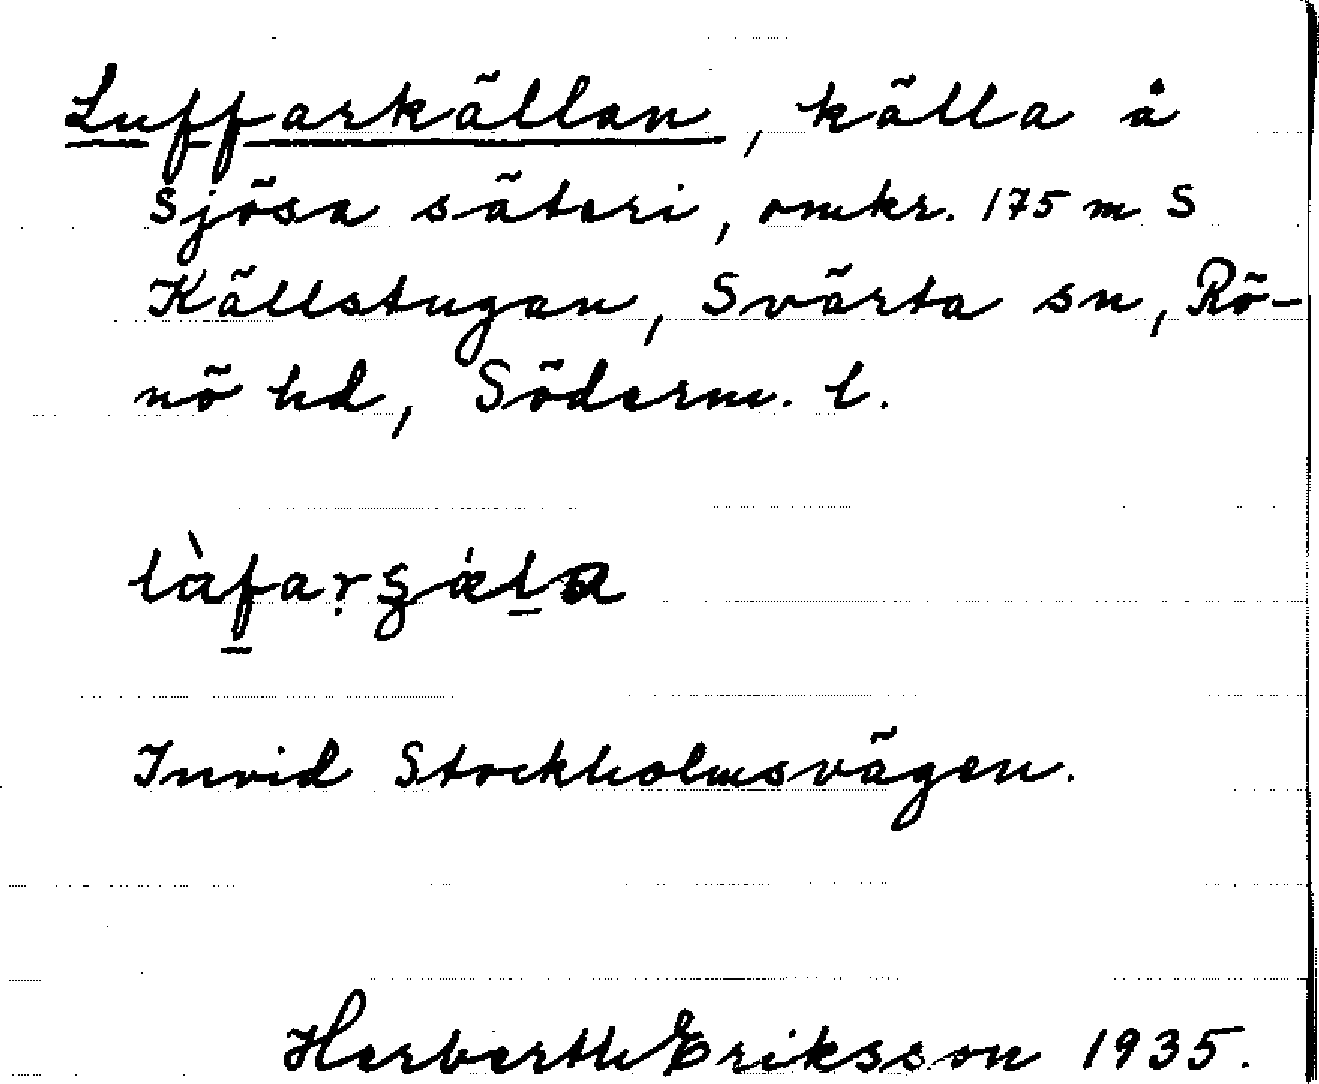 Luffarkällan, källa å
Sjösa säteri, omkr. 175 m S
Källstugan, Svärta sn, Rö-
nö hd, Söderm. l.
Invid Stockholmsvägen.
Herberth Eriksson 1935.